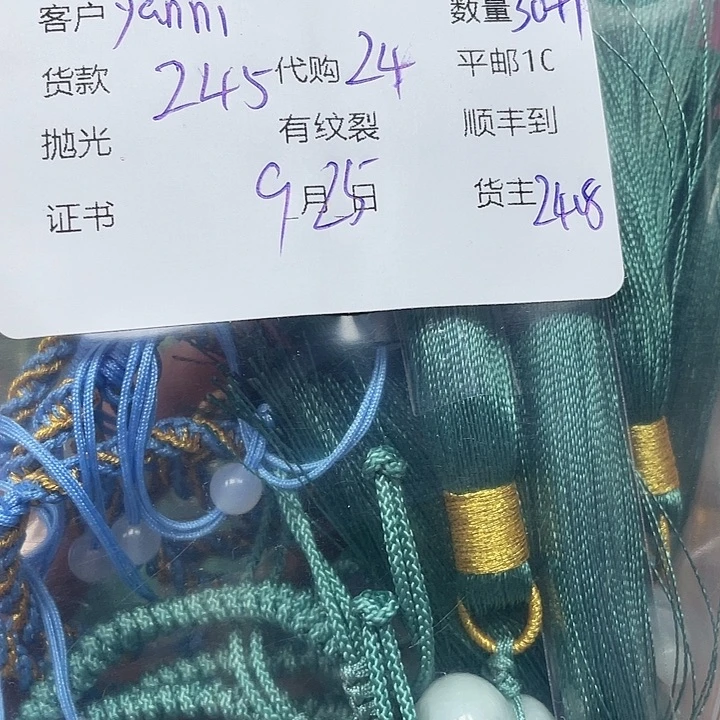 客户 yanni 数量 30+1
货款 245 代购 24 平邮1C
抛光 有纹裂 顺丰到
证书 9月25日 货主 2408